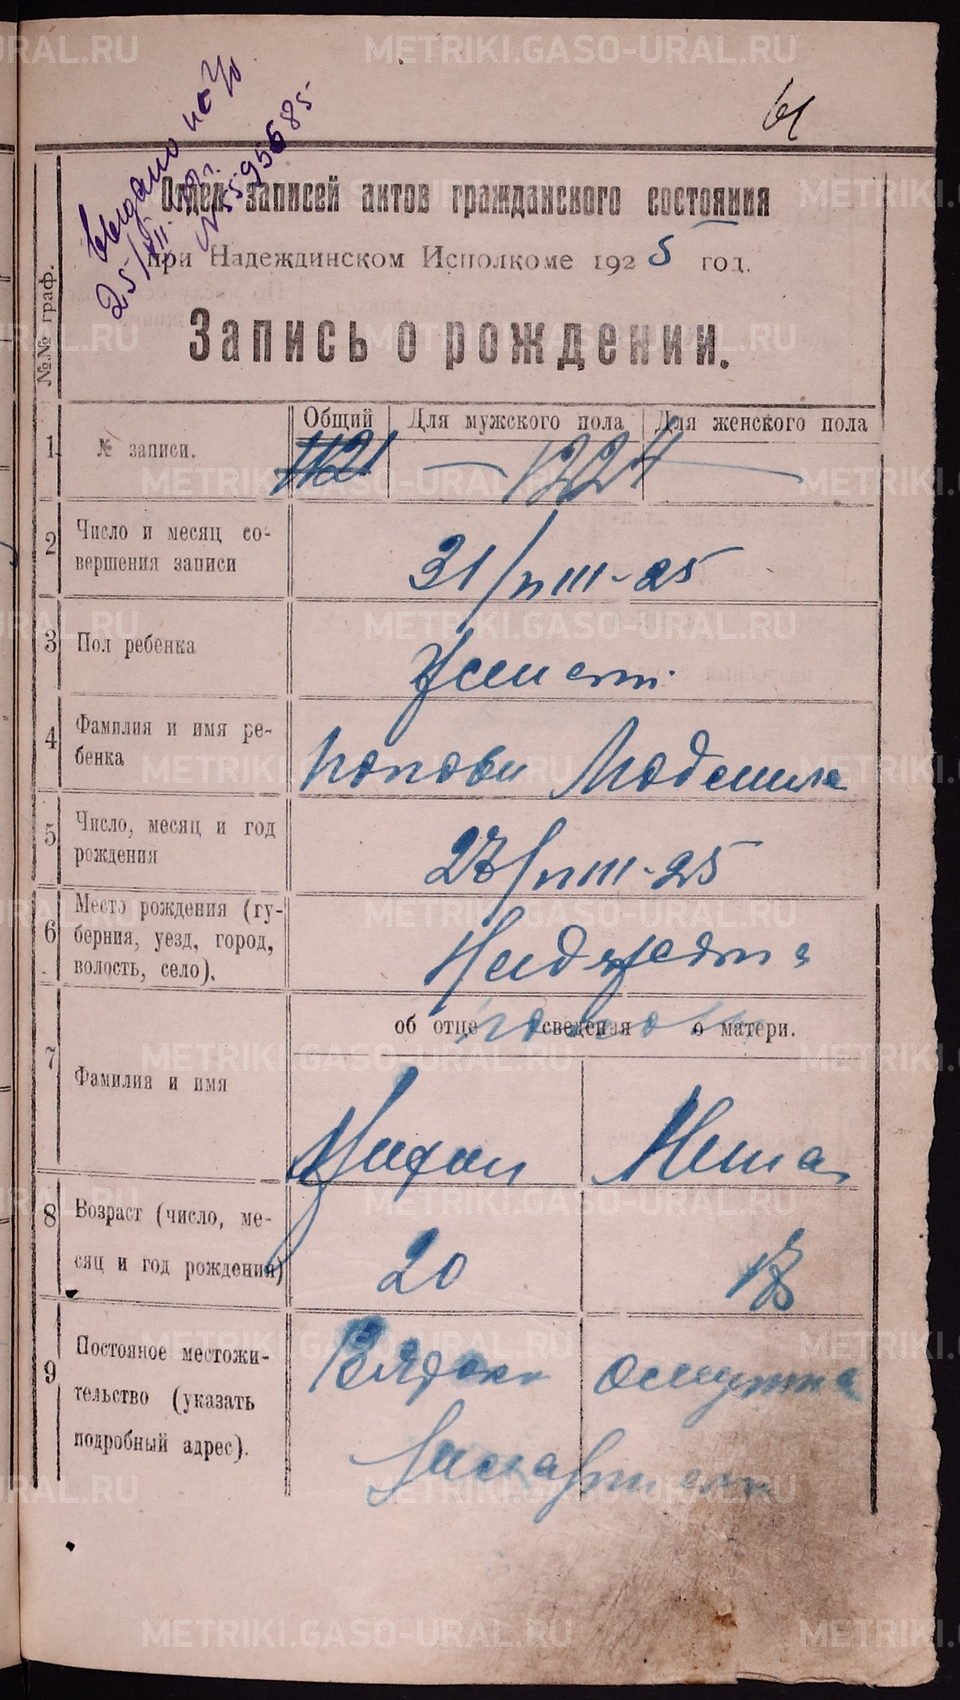 61
Выдано
25/VII
№ 5595685
Отдел записей актов гражданского состояния
при Надеждинском Исполкоме 1925 год.
Запись о рождении.
№№ граф.
Общий Для мужского пола Для женского пола
1 № записи. 1121 1224
2 Число и месяц со-
вершения записи
31/VIII-25
3 Пол ребенка
4 Фамилия и имя ре-
бенка
Попова Людмила
5 Число, месяц и год
рождения
27/VIII-25
6 Место рождения (гу-
берния, уезд, город,
волость, село).
об отце сведения о матери.
7 Фамилия и имя
8 Возраст (число, ме-
сяц и год рождения)
20 18
9 Постояное местожи-
тельство (указать
подробный адрес).
METRIKI.GASO-URAL.RU